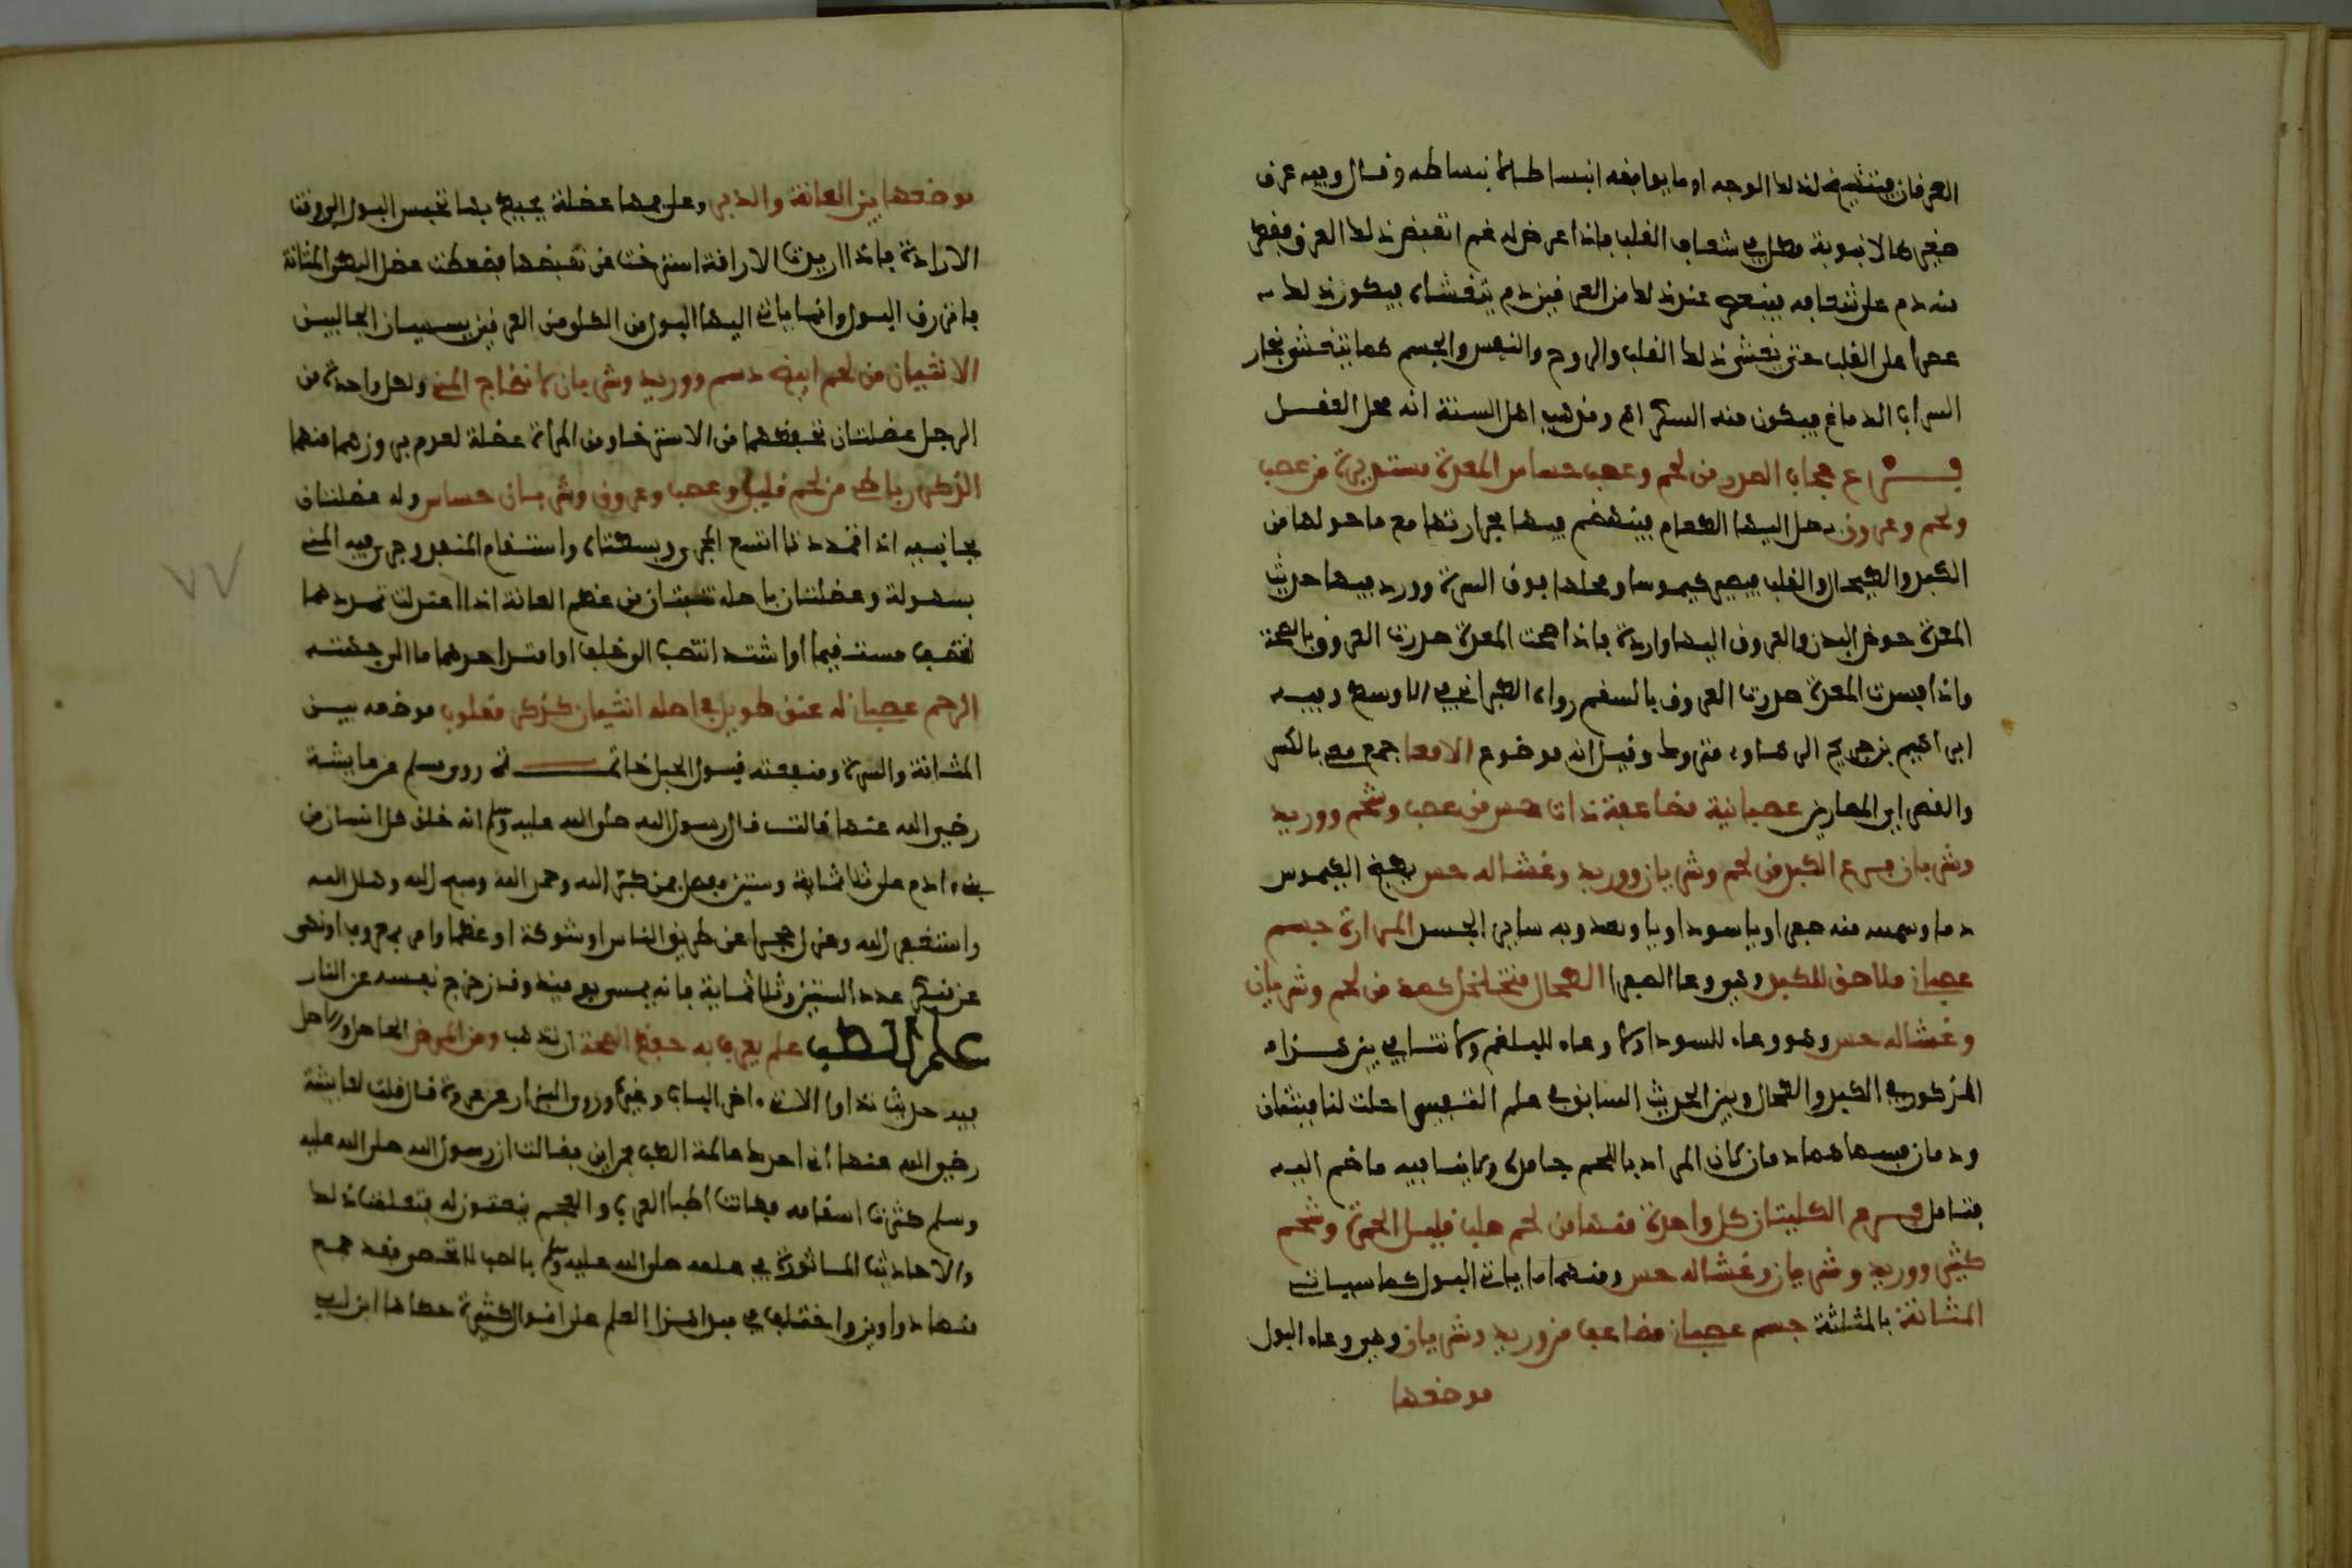 العرقان فينتشيخ لذلك الوجه او ما يوافقه انبساطها كانبساطه وقال وفيه عرق
صغير كالانبوبة مطل في شغاف القلب فاذا عرض له غم انقبض ذلك العرق فقطر
منه دم على شغافه فينعصر عند ذلك من العرقين دم يتغشاه فيكون ذلك
عصرا على القلب حتى يغشى ذلك القلب والروح والنفس والجسم كما يتغشى بخار
الشراب الدماغ فيكون منه السكر اه ومذهب اهل السنة انه محل العقل
فرع حجاب الصدر من لحم وعصب حساس المعدة مستديرة من عصب
ولحم وعروق يصل اليها الطعام فينهضم فيها بحرارتها مع ما حولها من
الكبد والطحال والقلب فيصير كيموسا ومحلها فوق السرة وورد فيها حديث
المعدة حوض البدن والعروق اليها واردة فاذا صحت المعدة صدرت العروق بالصحة
واذا فسدت المعدة صدرت العروق بالسقم رواه الطبراني في الاوسط وفيه
ابراهيم بن جريج الرهاوي متروك وقيل انه موضوع الامعا جمع معى بالكسر
والقصر اي المصارين عصبانية مضاعفة ذات حس من عصب وشحم ووريد
وشريان فرع الكبد من لحم وشريان ووريد وغشا له حس يطبخ الكيموس
دما منه صفرا وسودا سائر الجسد المرارة جسم
عصباني ملاصق للكبد وهي وعا الصفرا الطحال متخلخل كمد من لحم وشريان
وغشا له حس وهو وعاء للسودا ولا وعاء للبلغم ولا تنافي بين هذا
المذكور في الكبد والطحال وبين الحديث السابق في علم التفسير احلت لنا ميتتان
ودمان فسماهما دمان لان المراد باللحم جامد ولا ينافيه ما ضم اليه
فتامل فرع الكليتان كل واحدة منهما من لحم صلب قليل الحمرة وشحم
كثير ووريد وشريان وغشا له حس ومنهما ياتي البول كما سياتي
المثانة بالمثلثة جسم عصباني مضاعف من وريد وشريان وهي وعاء البول
موضعها
موضعها بين العانة والدبر وعلى فمها عضلة يحيط بها تحبس البول الى وقت
الارادة فاذا اريدت الاراقة استرخت عن تقبضها فضغطت عضل البطن المثانة
فانزرق البول وانما ياتي اليها البول من الكلى من العرقين يسميان الحالبين
الانثيان من لحم ابيض دسم ووريد وشريان لانضاج المني ولكل واحدة من
الرجل عضلتان تحفظهما من الاسترخاء ومن المراة عضلة لعدم بروزهما منهما
الذكر رباطي من لحم قليل وعصب وعروق وشريان حساس وله عضلتان
بجانبيه اذا تمددتا اتسع المجرى وبسطتاه واستقام المنفذ وجرى فيه المني
بسهولة وعضلتان باصله تنبتان من عظم العانة اذا اعتدلت تمددهما
انتصب مستقيما او اشتد انتصب الى خلف او امتد احدهما مال الى جهته
الرحم عصباني له عنق طويل في اصله انثيان كذكر مقلوب موضعه بين
المثانة والسرة ومنفعته قبول الحبل خاتمة روى مسلم عن عايشة
رضي الله عنها قالت قال رسول الله صلى الله عليه وسلم انه خلق كل انسان من
بني ادم على ثلاثماية وستين مفصل فمن كبر الله وحمد الله وسبح الله وهلل الله
واستغفر الله وعزل حجرا عن طريق الناس او شوكة او عظما او امر بمعروف او نهى
عن منكر عدد الستين وثلاثماية فانه يمسي يوميذ وقد زحزح نفسه عن النار
علم الطب علم يعرف به حفظ الصحة ان تذهب وبرء المرض الحاصل والاصل
فيه حديث تداووا الاتي اخر الباب وغيره وروى البزار عن عروة قال قلت لعايشة
رضي الله عنها اني اجدك عالمة الطب فمن اين فقالت ان رسول الله صلى الله عليه
وسلم كثرت اسقامه فكانت اطبا العرب والعجم ينعتون له فتعلمت ذلك
والاحاديث الماثورة في علمه صلى الله عليه وسلم بالطب لا تحصر فقد جمع
منها دواوين واختلف في مبدا هذا العلم على اقوال كثيرة حكاها ابن ابي